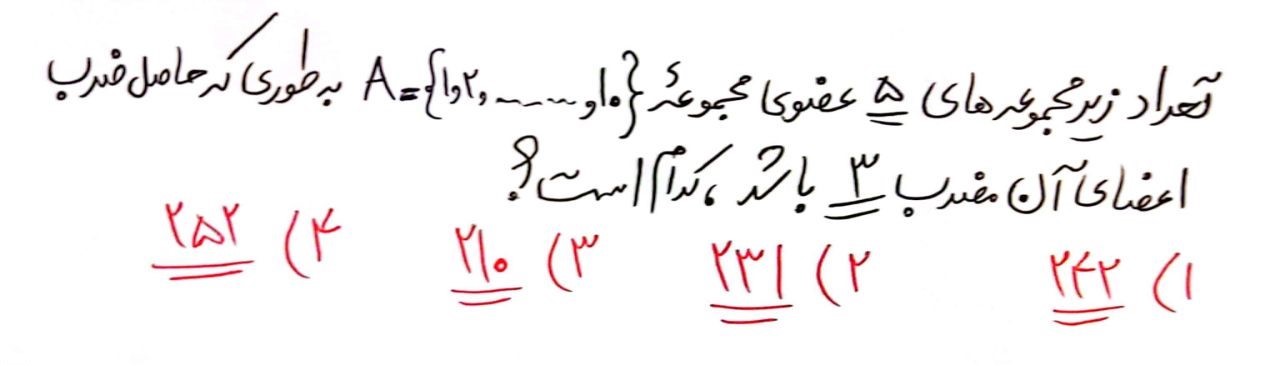 تعداد زیرمجموعه های ۵ عضوی مجموعهٔ A={۱,۲,.....,۱۰} به طوری که حاصل ضرب
اعضای آن مضرب ۳ باشد، کدام است؟
۱) ۲۴۲ ۲) ۲۳۱ ۳) ۲۱۰ ۴) ۲۵۲